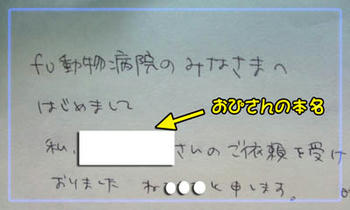 fu動物病院のみなさまへ
はじめまして
おびさんの本名
私、さんのご依頼を受け
おりました ねと申します。